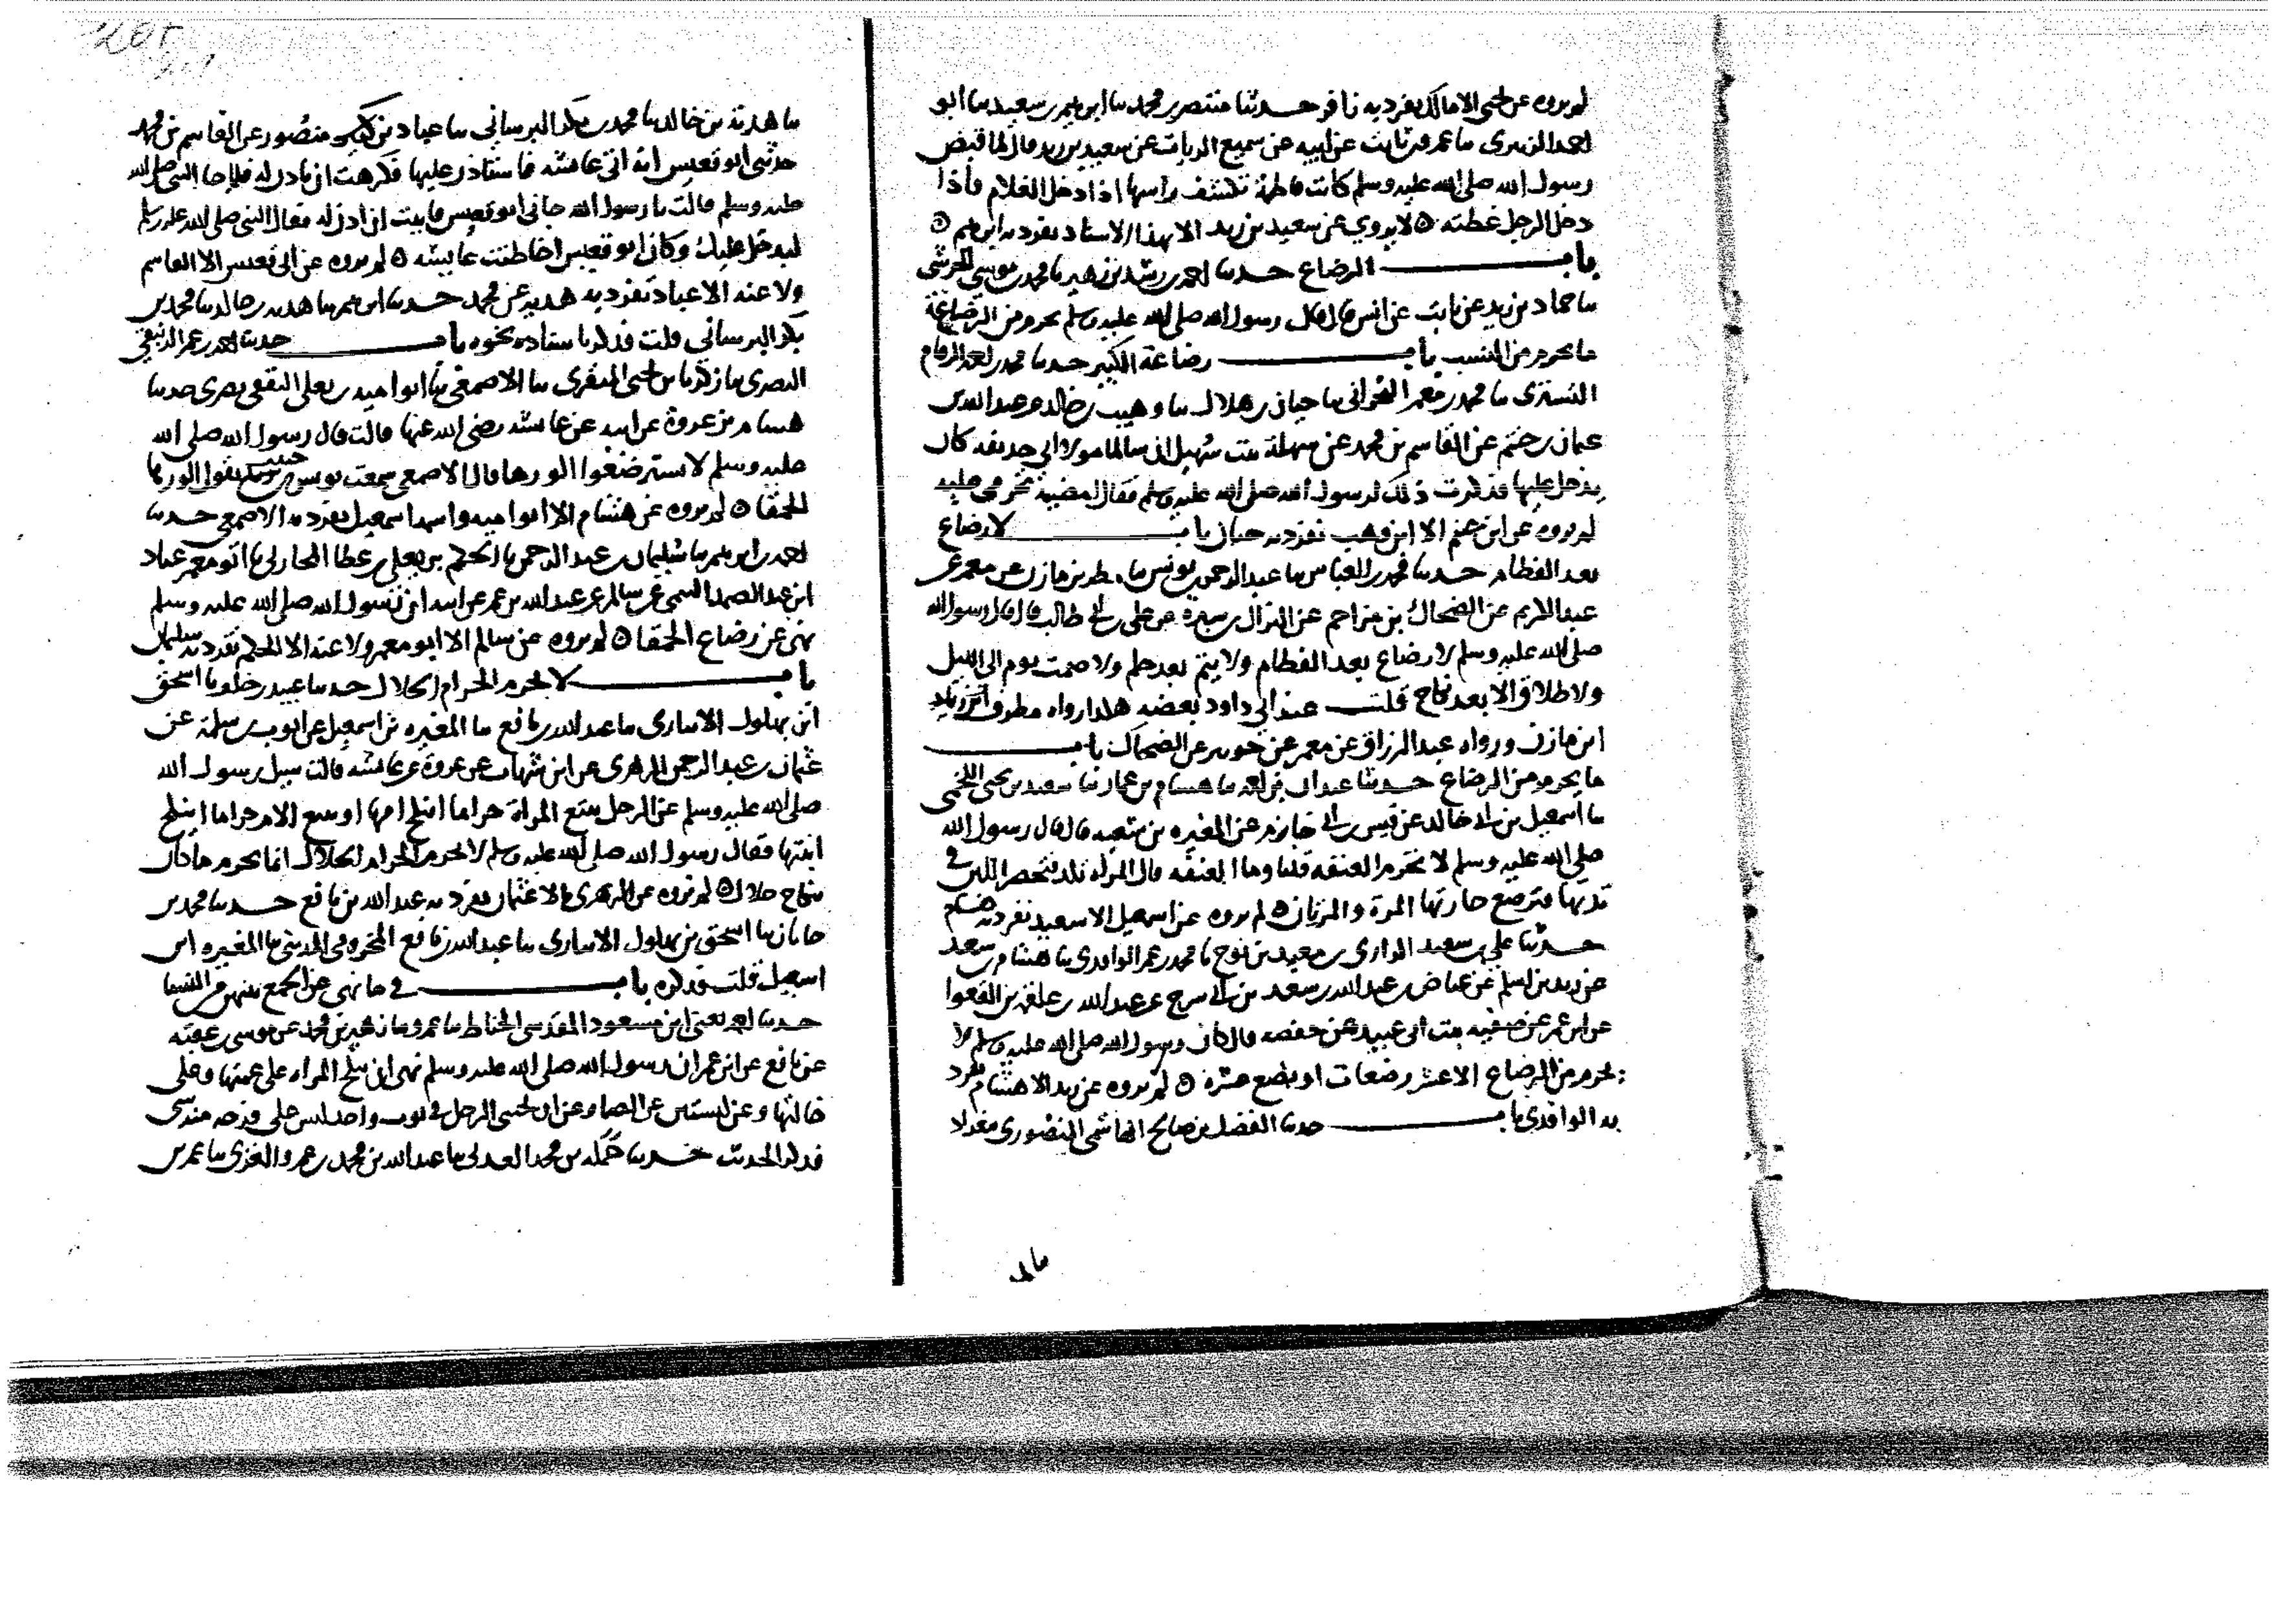 لم يروه عن يحيى الا مالك تفرد به زافر حدثنا منتصر بن محمد ثنا ابرهيم بن سعيد ثنا ابو
احمد الزبيرى ثنا عمرو بن ثابت عن ابيه عن سميع الزيات عن سعيد بن زيد قال لما قبض
رسول الله صلى الله عليه وسلم كانت فاطمة تكشف راسها اذا دخل الغلام فاذا
دخل الرجل غطته ه لا يروي عن سعيد بن زيد الا بهذا الاسناد تفرد به ابرهيم ه
باب الرضاع حدثنا احمد بن رشد بن زهير ثنا محمد بن موسى الحرشي
ثنا حماد بن زيد عن ثابت عن انس قال قال رسول الله صلى الله عليه وسلم يحرم من الرضاعة
ما يحرم من النسب باب رضاعة الكبير حدثنا محمد بن احمد
التسترى ثنا محمد بن معمر البحراني ثنا حبان بن هلال ثنا وهيب بن خالد عن عبد الله بن
عثمان بن خثيم عن القاسم بن محمد عن سهلة بنت سهيل ان سالما مولى ابي حذيفه كان
يدخل عليها فذكرت ذلك لرسول الله صلى الله عليه وسلم فقال امضيه تحرمي عليه
لم يروه عن ابن خثيم الا وهيب تفرد به حبان باب لا رضاع
بعد الفطام حدثنا محمد بن العباس ثنا عبد الرحمن بن يونس ثنا مطرف بن مازن عن معمر عن
عبد الكريم عن الضحاك بن مزاحم عن النزال بن سبرة عن علي بن ابي طالب قال قال رسول الله
صلى الله عليه وسلم لا رضاع بعد الفطام ولا يتم بعد حلم ولا صمت يوم الى الليل
ولا طلاق الا بعد نكاح قلت عند ابي داود بعضه هكذا رواه مطرف
ابن مازن ورواه عبد الرزاق عن معمر عن جويبر عن الضحاك باب
ما يحرم من الرضاع حدثنا عبدان بن احمد ثنا هشام بن عمار ثنا سعيد بن يحيى اللخمي
ثنا اسمعيل بن ابي خالد عن قيس بن ابي حازم عن المغيره بن شعبه قال قال رسول الله
صلى الله عليه وسلم لا تحرم العنفه قلنا وما العنفه قال المراه تلد فتحصر اللبن في
ثديها فترضع جارتها المرة والمرتان ه لم يروه عن اسمعيل الا سعيد تفرد به هشام
حدثنا علي بن سعيد الرازى بن معيد بن نوح ثنا محمد بن عمر الواقدى ثنا هشام بن سعد
عن زيد بن اسلم عن عياض بن عبد الله بن سعد بن ابي سرح عن عبد الله بن علقمه بن الفغوا
عن ابن عمر عن صفيه بنت ابي عبيد عن حفصه قال كان رسول الله صلى الله عليه وسلم لا
يحرم من الرضاع الا عشر رضعات او بضع عشرة ه لم يروه عن زيد الا هشام تفرد
به الواقدى باب حدثنا الفضل بن صالح الهاشمي المنصورى ببغداد
ثنا هدبة بن خالد ثنا محمد بن بكر البرساني ثنا عباد بن منصور عن القاسم بن محمد
حدثني ابو قعيس انه اتى عائشه فاستاذن عليها فكرهت ان تاذن له فلما جا النبي صلى الله
عليه وسلم قالت يا رسول الله جاني ابو قعيس فابيت ان اذن له فقال النبي صلى الله عليه وسلم
ليدخل عليك وكان ابو قعيس اخا ظئر عايشه ه لم يروه عن ابي قعيس الا القاسم
ولا عنه الا عباد تفرد به هديه عن محمد حدثنا ابرهيم ثنا هدبه بن خالد ثنا محمد بن
بكر البرساني قلت فذكر باسناده نحوه باب حدثنا احمد بن عمر
البصرى ثنا زكريا بن يحيى المنقرى ثنا الاصمعي ثنا ابو اميه بن يعلى الثقفى بصرى حدثنا
هشام بن عروة عن ابيه عن عائشه رضي الله عنها قالت قال رسول الله صلى الله
عليه وسلم لا تسترضعوا الورها قال الاصمعي سمعت يونس بن حبيب يقول الورها
الحمقا ه لم يروه عن هشام الا ابو اميه واسمه اسمعيل تفرد به الاصمعي حدثنا
احمد بن ابرهيم ثنا سليمان بن عبد الرحمن ثنا الحكم بن يعلى بن عطا المحاربي ثنا ابو معمر عباد
ابن عبد الصمد التيمي عن سالم عن عبد الله بن عمر عن ابيه ان رسول الله صلى الله عليه وسلم
نهى عن رضاع الحمقا ه لم يروه عن سالم الا ابو معمر ولا عنه الا الحكم تفرد به سليمان
باب لا يحرم الحرام الحلال حدثنا عبيد بن خلف ثنا اسحق
ابن بهلول الانبارى ثنا عبد الله بن نافع ثنا المغيره بن اسمعيل عن ايوب بن سلمة عن
عثمان بن عبد الرحمن الزهرى عن ابن شهاب عن عروة عن عائشه قالت سيل رسول الله
صلى الله عليه وسلم عن الرجل يتبع المراة حراما اينكح امها او يتبع الام حراما اينكح
ابنتها فقال رسول الله صلى الله عليه وسلم لا يحرم الحرام الحلال انما يحرم ما كان
بنكاح حلال ه لم يروه عن الزهرى الا عثمان تفرد به عبد الله بن نافع حدثنا محمد بن
جابان ثنا اسحق بن بهلول الانبارى ثنا عبد الله بن نافع المخزومي المديني ثنا المغيره ابن
اسمعيل قلت فذكره باب في ما نهي عن الجمع بينهن من النسا
حدثنا احمد يعني ابن مسعود المقدسي الخياط ثنا عمرو ثنا زهير بن محمد عن موسى بن عقبه
عن نافع عن ابن عمر ان رسول الله صلى الله عليه وسلم نهى ان تنكح المراه على عمتها وعلى
خالتها وعن لبستين عن الصما وعن ان يحتبي الرجل في ثوب واحد ليس على فرجه منه شى
فذكر الحديث حدثنا حمله بن محمد ثنا عبد الله بن محمد بن عمرو الغزى ثنا عمر بن